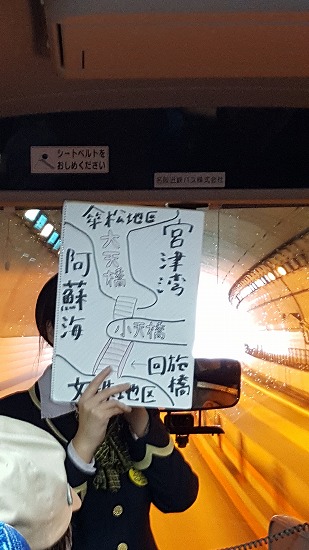 シートベルトを
おしめください
名阪近鉄バス株式会社
傘松地区
大天橋
宮津湾
阿蘇海
小天橋
回旋橋
文殊地区